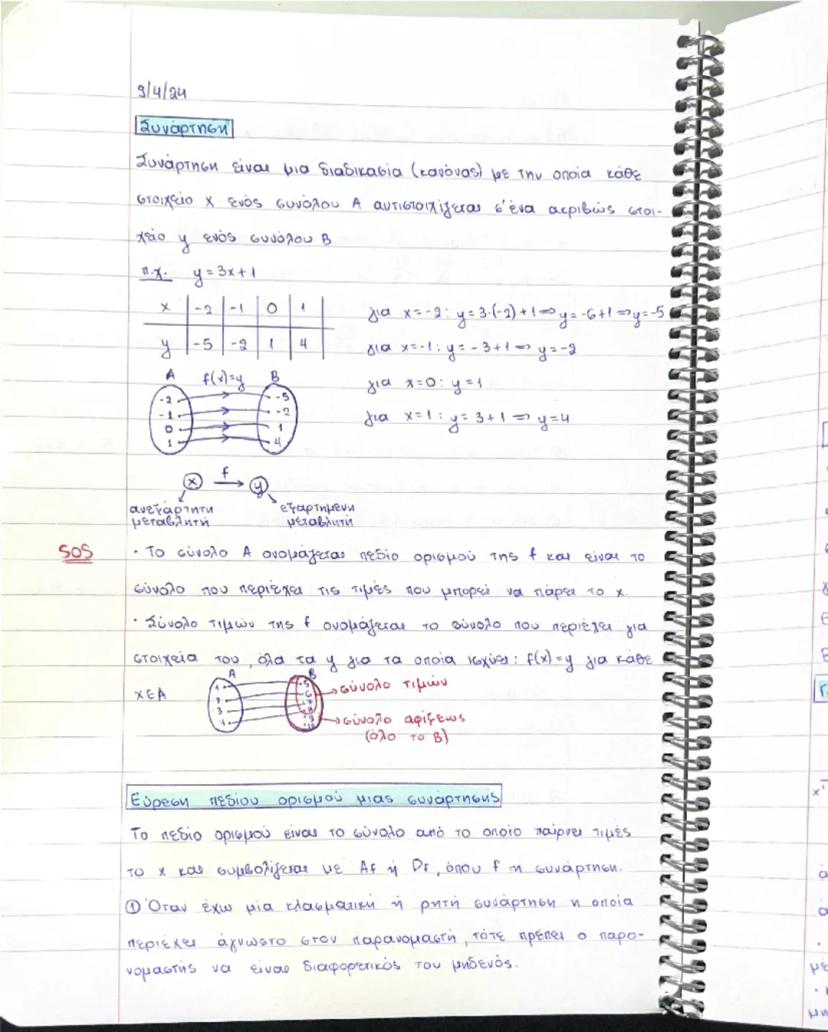 9/4/24
Συνάρτηση
Συνάρτηση είναι μια διαδικασία (κανόνας) με την οποία κάθε
στοιχείο x ενός συνόλου A αντιστοιχίζεται σ'ένα ακριβώς στοι-
χείο y ενός συνόλου B
π.χ. y=3x+1
x -2 -1 0 1
y -5 -2 1 4
για x=-2: y=3·(-2)+1⇒y=-6+1⇒y=-5
για x=-1: y=-3+1⇒y=-2
για x=0: y=1
για x=1: y=3+1⇒y=4
A f(x)=y B
-2 -5
-1 -2
0 1
1 4
x f y
ανεξάρτητη μεταβλητή
εξαρτημένη μεταβλητή
SOS
· Το σύνολο A ονομάζεται πεδίο ορισμού της f και είναι το
σύνολο που περιέχει τις τιμές που μπορεί να πάρει το x.
· Σύνολο τιμών της f ονομάζεται το σύνολο που περιέχει για
στοιχεία του, όλα τα y για τα οποία ισχύει: f(x)=y για κάθε
x∈A
A B
1 5
2 6
3 7
4 8
9
10
σύνολο τιμών
σύνολο αφίξεως
(όλο το B)
Εύρεση πεδίου ορισμού μιας συνάρτησης
Το πεδίο ορισμού είναι το σύνολο από το οποίο παίρνει τιμές
το x και συμβολίζεται με Af ή Df, όπου f η συνάρτηση.
① Όταν έχω μία κλασματική ή ρητή συνάρτηση η οποία
περιέχει άγνωστο στον παρανομαστή, τότε πρέπει ο παρο-
νομαστής να είναι διαφορετικός του μηδενός.